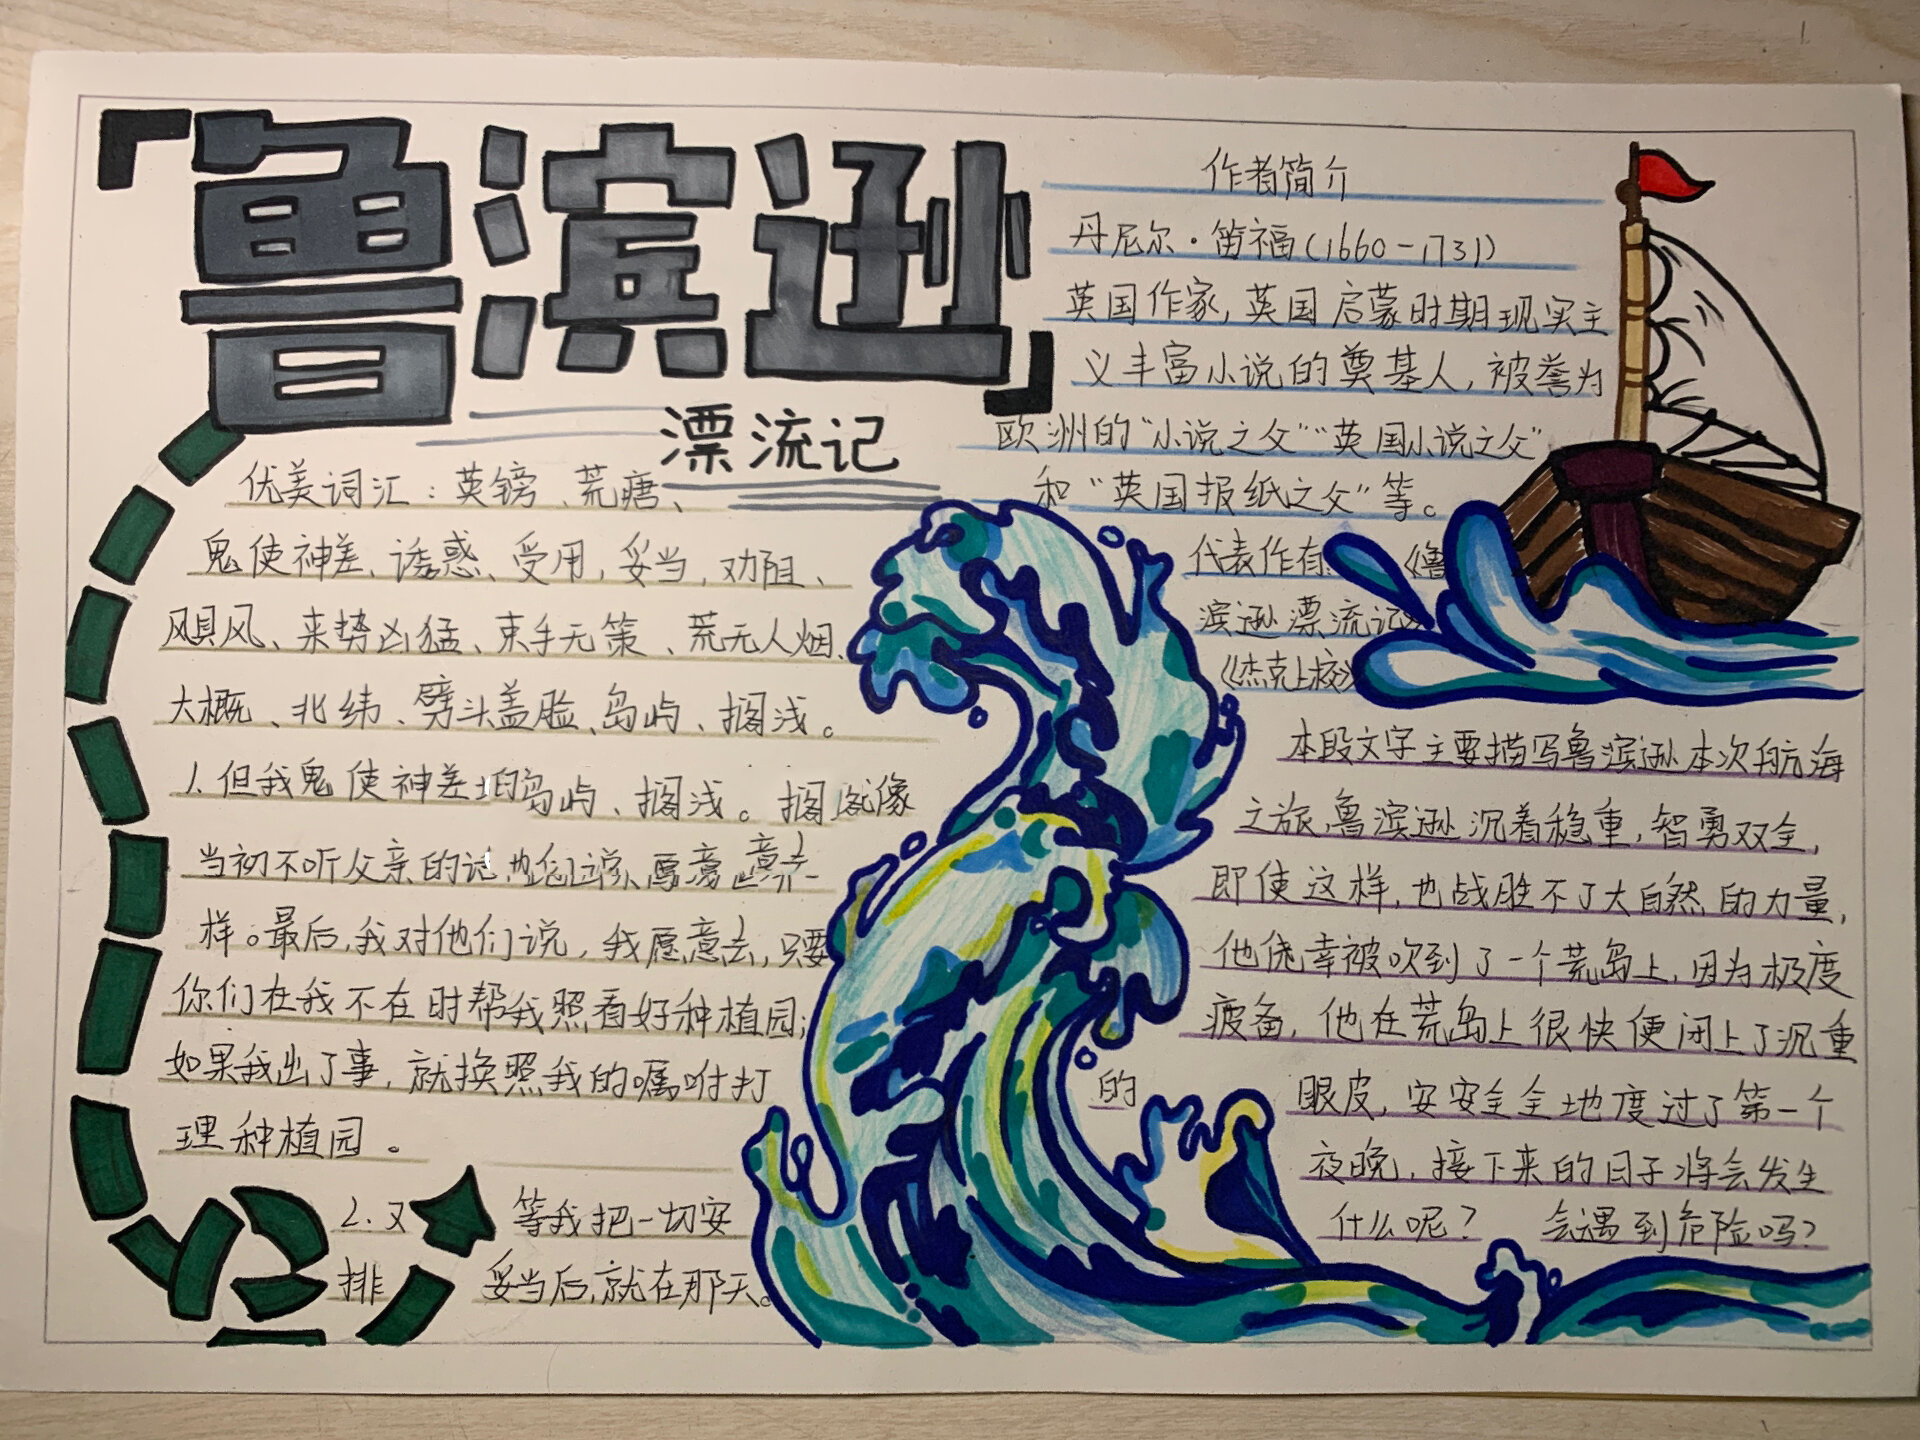 「鲁滨逊」
漂流记
优美词汇：英镑、荒唐、
鬼使神差、诱惑、受用，妥当，劝阻、
飓风、来势凶猛、束手无策、荒无人烟、
大概、北纬、劈头盖脸、岛屿、搁浅。
1.但我鬼使神差的岛屿、搁浅。搁 就像
当初不听父亲的 愿意 意去一
样。最后，我对他们说，我愿意去，只要
你们在我不在时帮我照看好种植园；
如果我出了事，就换照我的嘱咐打
理种植园。
2.又 等我把一切安
排 妥当后，就在那天。
作者简介
丹尼尔·笛福(1660-1731)
英国作家，英国启蒙时期现实主
义丰富小说的奠基人，被誉为
欧洲的“小说之父”“英国小说之父”
和“英国报纸之父”等。
代表作有 《鲁
滨逊漂流记》
《杰克上校》
本段文字主要描写鲁滨逊本次航海
之旅，鲁滨逊沉着稳重，智勇双全，
即使这样，也战胜不了大自然的力量，
他侥幸被吹到了一个荒岛上，因为极度
疲备，他在荒岛上很快便闭上了沉重
的 眼皮，安安全全地度过了第一个
夜晚，接下来的日子将会发生
什么呢？ 会遇到危险吗？